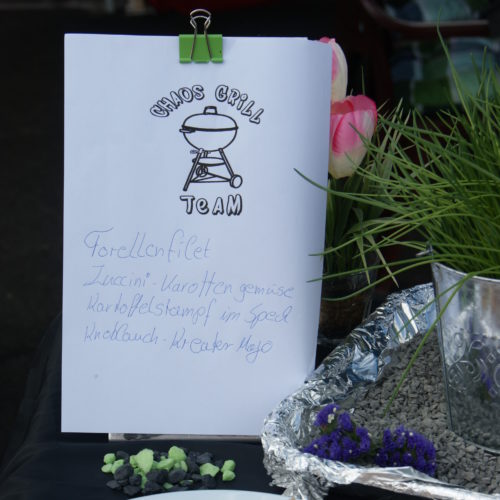 CHAOS GRILL
TEAM
Forellenfilet
Zuccini - Karotten gemüse
Kartoffelstampf im Speck
Knoblauch - Kreater Mojo